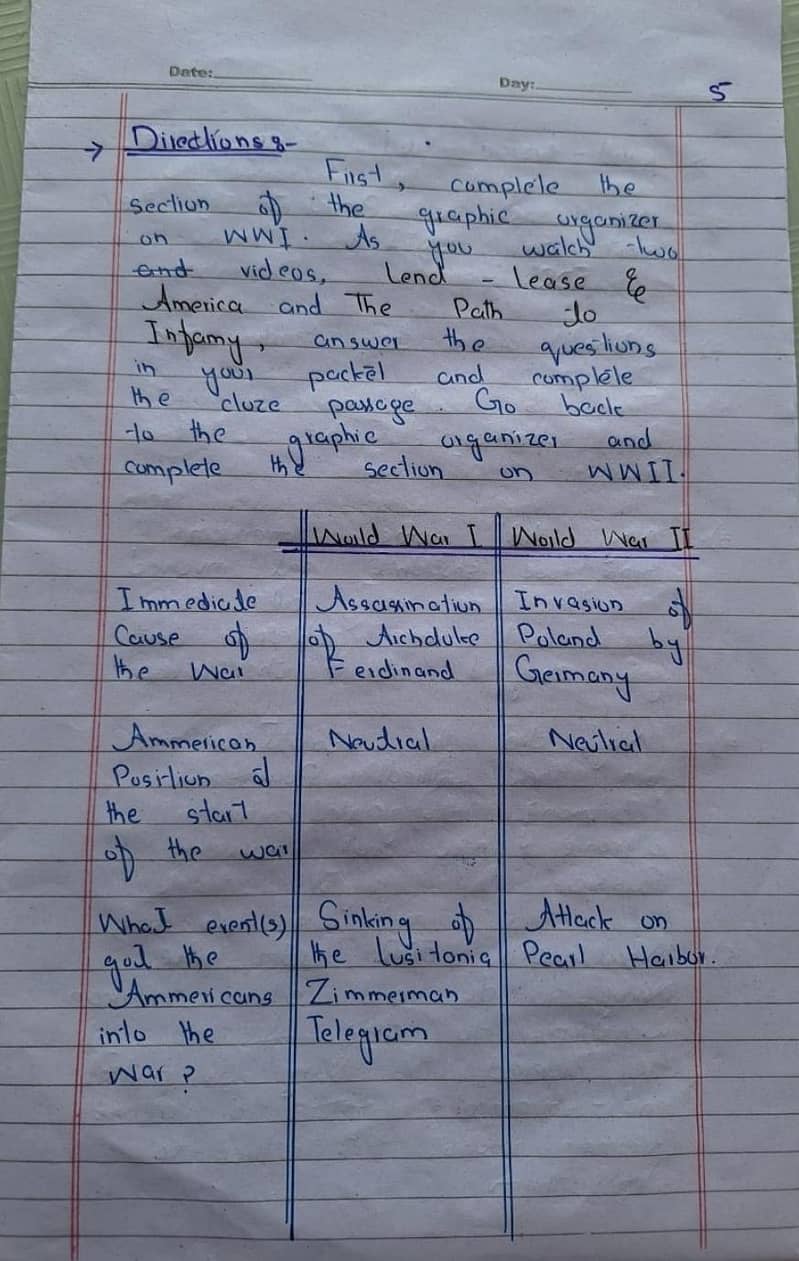 Date:
Day:
5
→ Directions :-
First, complete the
section of the graphic organizer
on WWI. As you watch two
and videos, Lend - Lease &
America and The Path to
Infamy, answer the questions
in your packet and complete
the cloze passage. Go back
to the graphic organizer and
complete the section on WWII.
World War I World War II
Immediate Assassination Invasion of
Cause of of Archduke Poland by
the War Ferdinand Germany
Ammerican Neutral Neutral
Position at
the start
of the war
What event(s) Sinking of Attack on
got the the Lusitania Pearl Harbor.
Ammericans Zimmerman
into the Telegram
War ?